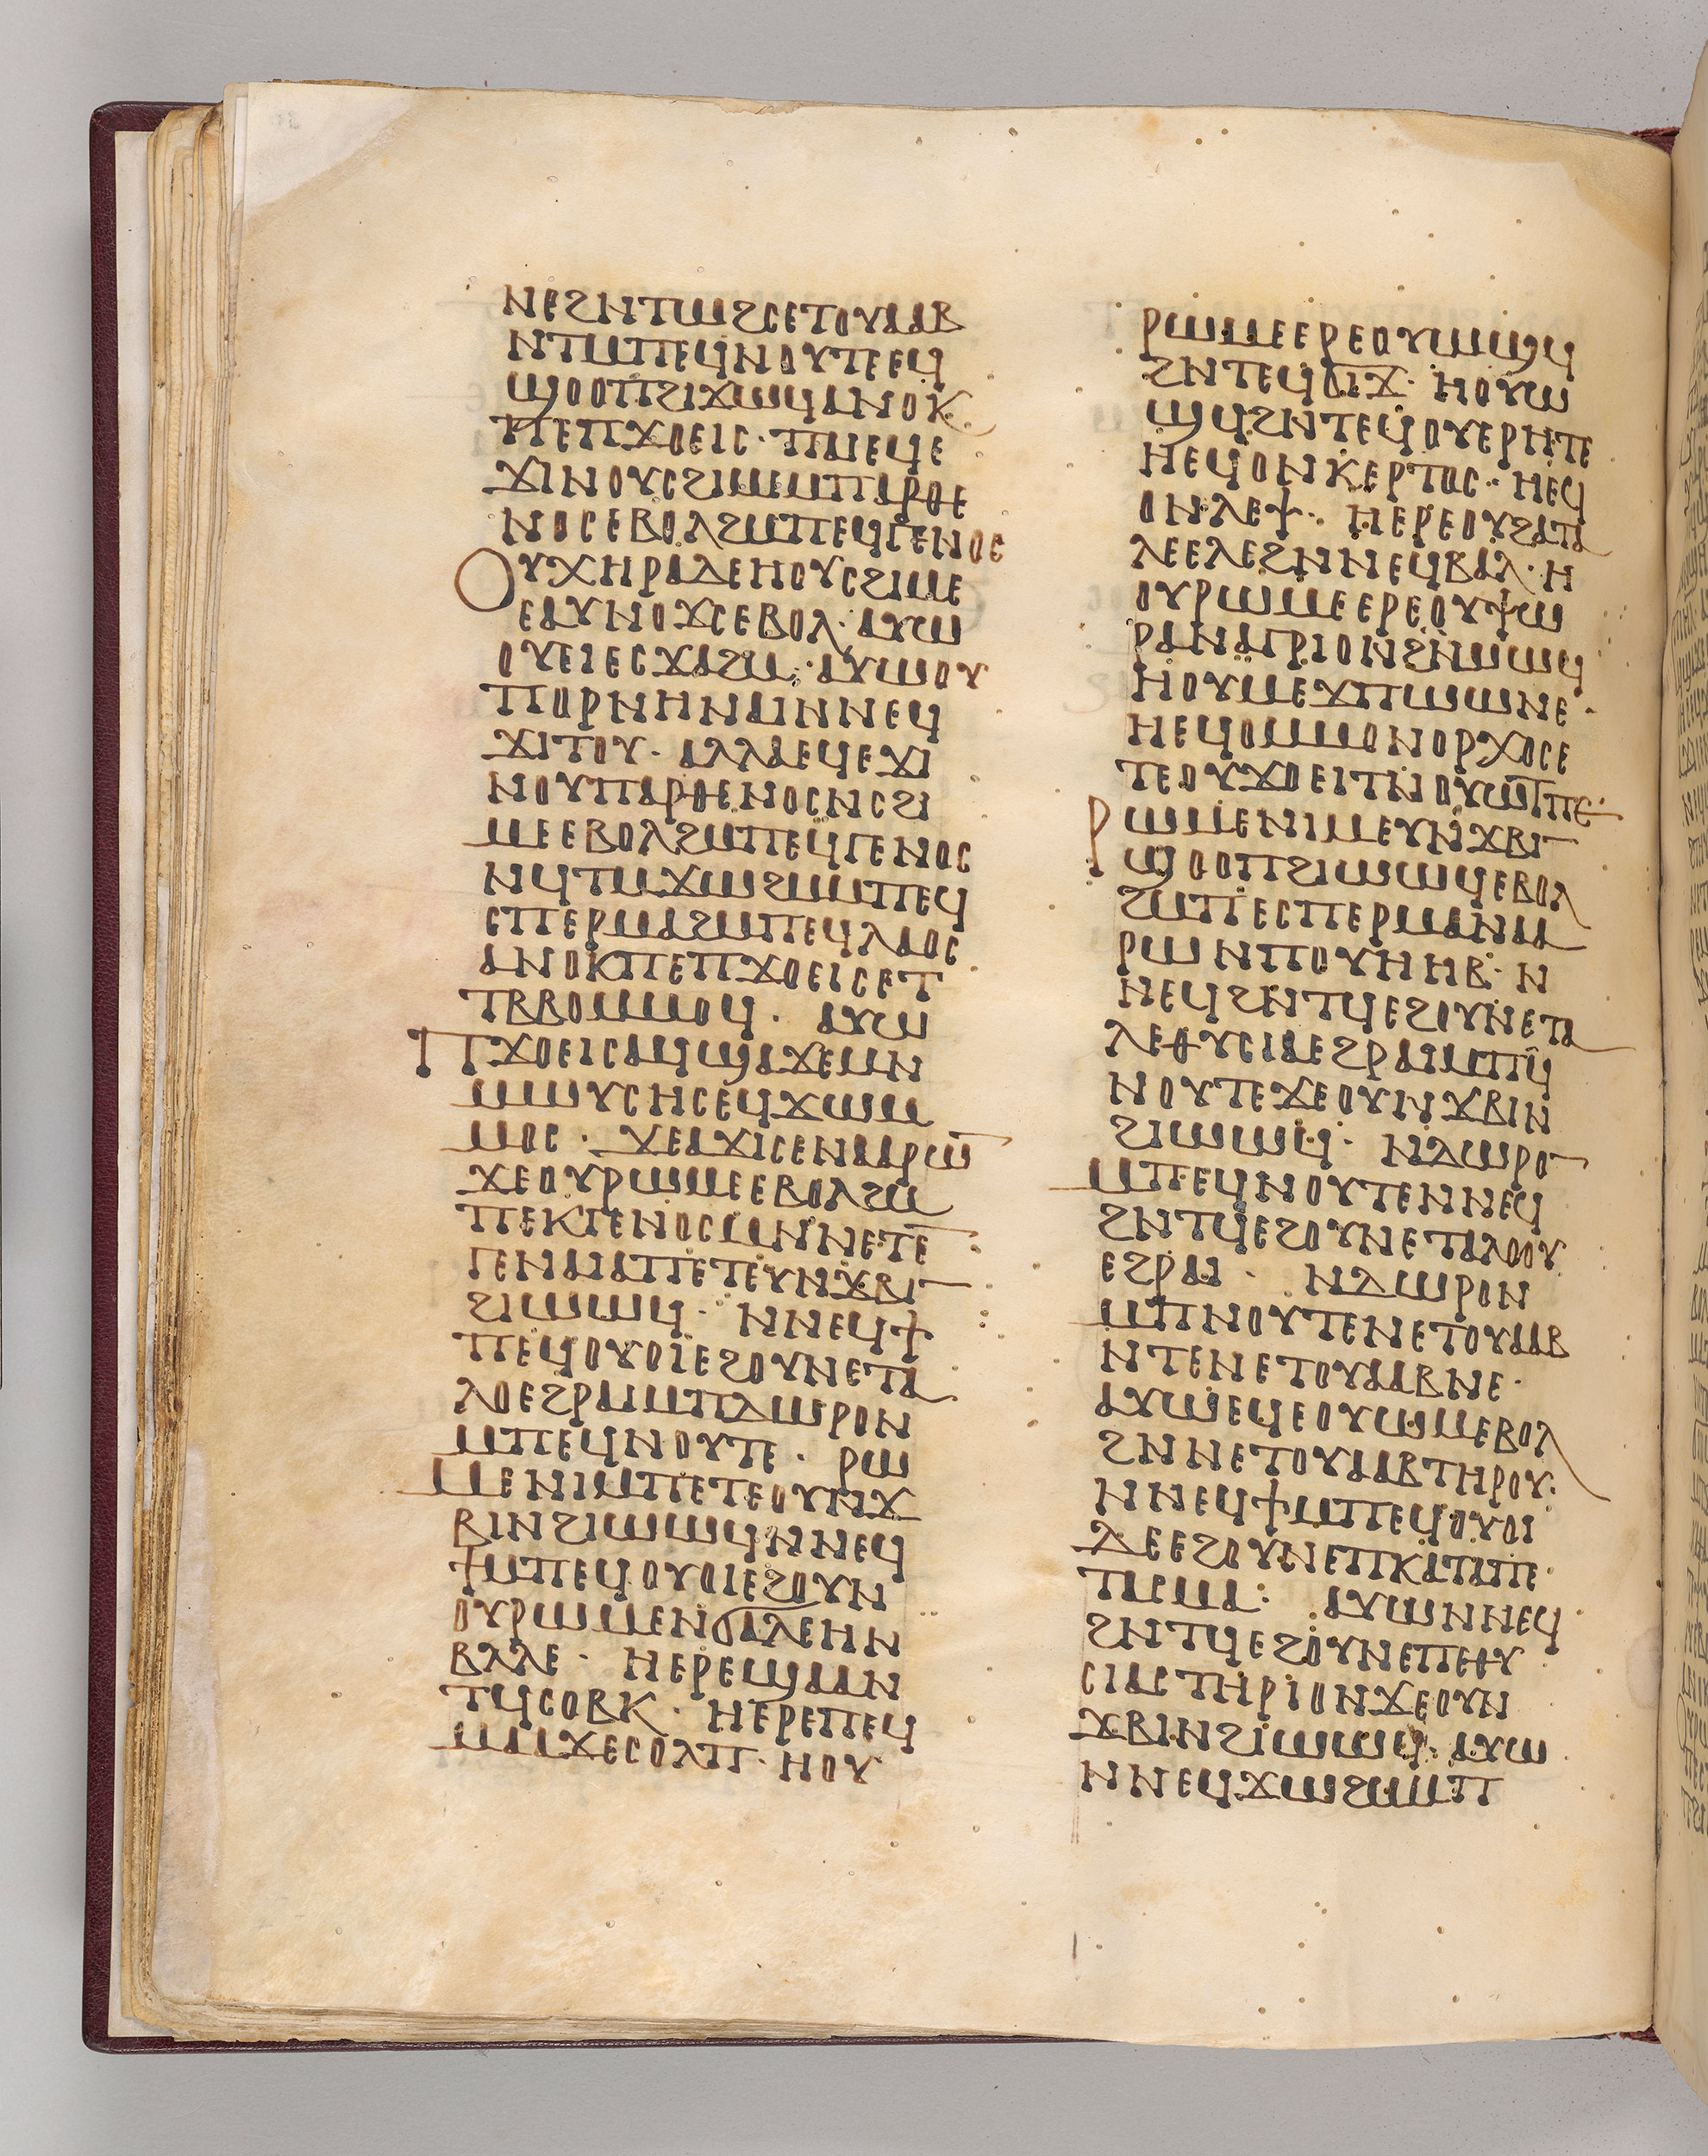 ⲛⲉϩⲛⲧⲱϩⲥⲉⲧⲟⲩⲁⲁⲃ
ⲛⲧⲙⲡⲉϥⲛⲟⲩⲧⲉⲉϥ
ϣⲟⲟⲡϩⲓϫⲱϥⲁⲛⲟⲕ
ⲡⲉⲡϫⲟⲉⲓⲥ· ⲡⲁⲓⲉϥⲉ
ϫⲓⲛⲟⲩⲥϩⲓⲙⲉⲙⲡⲁⲣⲑⲉ
ⲛⲟⲥⲉⲃⲟⲗϩⲙⲡⲉϥⲅⲉⲛⲟⲥ
ⲟⲩⲭⲏⲣⲁⲇⲉⲏⲟⲩⲥϩⲓⲙⲉ
ⲉⲁⲩⲛⲟϫⲥⲉⲃⲟⲗ· ⲁⲩⲱ
ⲟⲩⲉⲓⲉⲥϫⲁϩⲙ· ⲁⲩⲱⲟⲩ
ⲡⲟⲣⲛⲏⲛⲁⲓⲛⲛⲉϥ
ϫⲓⲧⲟⲩ· ⲁⲗⲗⲁⲉϥⲉϫⲓ
ⲛⲟⲩⲡⲁⲣⲑⲉⲛⲟⲥⲛⲥϩⲓ
ⲙⲉⲉⲃⲟⲗϩⲙⲡⲉϥⲅⲉⲛⲟⲥ
ⲛϥⲧⲙϫⲱϩⲙⲙⲡⲉϥ
ⲥⲡⲉⲣⲙⲁϩⲙⲡⲉϥⲗⲁⲟⲥ
ⲁⲛⲟⲕⲡⲉⲡϫⲟⲉⲓⲥⲉⲧ
ⲧⲃⲃⲟⲙⲙⲟϥ· ⲁⲩⲱ
ⲡϫⲟⲉⲓⲥⲁϥϣⲁϫⲉⲙⲛ
ⲙⲱⲩⲥⲏⲥⲉϥϫⲱⲙ
ⲙⲟⲥ· ϫⲉⲁϫⲓⲥⲉⲛⲁⲁⲣⲱ̄
ϫⲉⲟⲩⲣⲱⲙⲉⲉⲃⲟⲗϩⲙ
ⲡⲉⲕⲅⲉⲛⲟⲥⲙⲛⲛⲉⲧⲉ̄
ⲅⲉⲛⲉⲁⲡⲉⲧⲉⲩⲛϫⲃⲓ̄
ϩⲓⲱⲱϥ· ⲛⲛⲉϥϯ
ⲡⲉϥⲟⲩⲟⲓⲉϩⲟⲩⲛⲉⲧⲁ
ⲗⲟⲉϩⲣⲁⲓⲙⲡⲇⲱⲣⲟⲛ
ⲙⲡⲉϥⲛⲟⲩⲧⲉ· ⲣⲱ
ⲙⲉⲛⲓⲙⲡⲉⲧⲉⲟⲩⲛϫ
ⲃⲓⲛϩⲓⲱⲱϥⲛⲛⲉϥ
ϯⲙⲡⲉϥⲟⲩⲟⲓⲉϩⲟⲩⲛ
ⲟⲩⲣⲱⲙⲉⲛϭⲁⲗⲉⲏⲛ
ⲃⲗⲗⲉ· ⲏⲉⲣⲉϣⲁⲁⲛ
ⲧϥⲥⲟⲃⲕ· ⲏⲉⲣⲉⲡⲉϥ
ⲙⲁⲁϫⲉⲥⲟⲗⲡ· ⲏⲟⲩ
ⲣⲱⲙⲉⲉⲣⲉⲟⲩⲱϣϥ
ϩⲛⲧⲉϥϭⲓϫ· ⲏⲟⲩⲱ
ϣϥϩⲛⲧⲉϥⲟⲩⲉⲣⲏⲧⲉ
ⲏⲉϥⲟⲛⲕⲉⲣⲧⲟⲥ· ⲏⲉϥ
ⲟⲛⲗⲉⲯ· ⲏⲉⲣⲉⲟⲩϩⲁⲧⲁ
ⲗⲉⲉⲗⲉϩⲛⲛⲉϥⲃⲁⲗ· ⲏ
ⲟⲩⲣⲱⲙⲉⲉⲣⲉⲟⲩⲯⲱ
ⲣⲁⲛⲁⲅⲣⲓⲟⲛϩⲓⲱⲱϥ
ⲏⲟⲩⲙⲉϫⲡⲱⲱⲛⲉ·
ⲏⲉϥⲟⲙⲙⲟⲛⲟⲣⲭⲟⲥⲉ
ⲧⲉⲟⲩϫⲟⲉⲓⲧⲛⲟⲩⲱⲧⲡⲉ·
ⲣⲱⲙⲉⲛⲓⲙⲉⲩⲛϫⲃⲓ̄
ϣⲟⲟⲡϩⲓⲱⲱϥⲉⲃⲟⲗ
ϩⲙⲡⲉⲥⲡⲉⲣⲙⲁⲛⲁⲁ
ⲣⲱⲛⲡⲟⲩⲏⲏⲃ· ⲛ
ⲛⲉϥϩⲛⲧϥⲉϩⲟⲩⲛⲉⲧⲁ
ⲗⲉⲑⲩⲥⲓⲁⲉϩⲣⲁⲓⲙⲡϥ
ⲛⲟⲩⲧⲉϫⲉⲟⲩⲛϫⲃⲓⲛ
ϩⲓⲱⲱϥ· ⲛⲇⲱⲣⲟ̄
ⲙⲡⲉϥⲛⲟⲩⲧⲉⲛⲛⲉϥ
ϩⲛⲧϥⲉϩⲟⲩⲛⲉⲧⲁⲗⲟⲟⲩ
ⲉϩⲣⲁⲓ· ⲛⲇⲱⲣⲟⲛ
ⲙⲡⲛⲟⲩⲧⲉⲛⲉⲧⲟⲩⲁⲁⲃ
ⲛⲧⲉⲛⲉⲧⲟⲩⲁⲁⲃⲛⲉ·
ⲁⲩⲱⲉϥⲉⲟⲩⲱⲙⲉⲃⲟⲗ
ϩⲛⲛⲉⲧⲟⲩⲁⲁⲃⲧⲏⲣⲟⲩ·
ⲛⲛⲉϥϯⲙⲡⲉϥⲟⲩⲟⲓ
ⲇⲉⲉϩⲟⲩⲛⲉⲡⲕⲁⲧⲁⲡⲉ·
ⲧⲁⲥⲙⲁ: ⲁⲩⲱⲛⲛⲉϥ
ϩⲛⲧϥⲉϩⲟⲩⲛⲉⲡⲉⲑⲩ
ⲥⲓⲁⲥⲧⲏⲣⲓⲟⲛϫⲉⲟⲩⲛ
ϫⲃⲓⲛϩⲓⲱⲱϥ· ⲁⲩⲱ
ⲛⲛⲉϥϫⲱϩⲙⲙⲡ